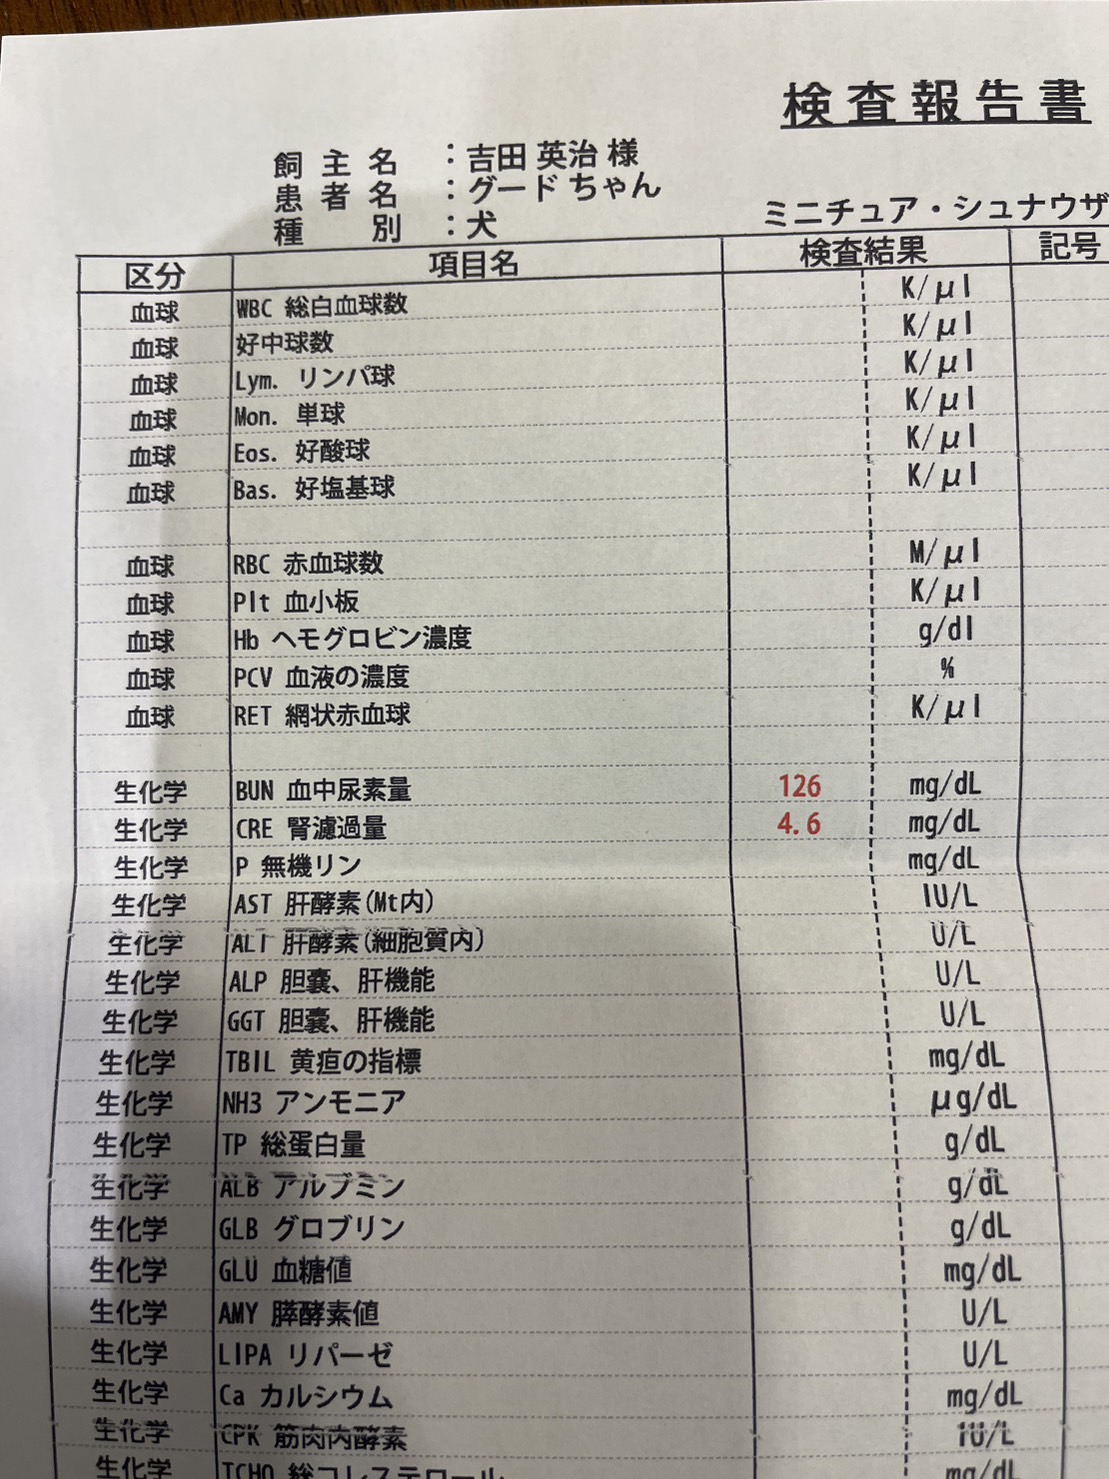 検査報告書
飼主名 : 吉田 英治 様
患者名 : グード ちゃん
種別 : 犬
ミニチュア・シュナウザ
区分 項目名 検査結果 記号
血球 WBC 総白血球数 K/μl
血球 好中球数 K/μl
血球 Lym. リンパ球 K/μl
血球 Mon. 単球 K/μl
血球 Eos. 好酸球 K/μl
血球 Bas. 好塩基球 K/μl
血球 RBC 赤血球数 M/μl
血球 Plt 血小板 K/μl
血球 Hb ヘモグロビン濃度 g/dl
血球 PCV 血液の濃度 %
血球 RET 網状赤血球 K/μl
生化学 BUN 血中尿素量 126 mg/dL
生化学 CRE 腎濾過量 4.6 mg/dL
生化学 P 無機リン mg/dL
生化学 AST 肝酵素(Mt内) IU/L
生化学 ALT 肝酵素(細胞質内) U/L
生化学 ALP 胆嚢、肝機能 U/L
生化学 GGT 胆嚢、肝機能 U/L
生化学 TBIL 黄疸の指標 mg/dL
生化学 NH3 アンモニア μg/dL
生化学 TP 総蛋白量 g/dL
生化学 ALB アルブミン g/dL
生化学 GLB グロブリン g/dL
生化学 GLU 血糖値 mg/dL
生化学 AMY 膵酵素値 U/L
生化学 LIPA リパーゼ U/L
生化学 Ca カルシウム mg/dL
生化学 CPK 筋肉内酵素 IU/L
生化学 TCHO 総コレステロール mg/dL